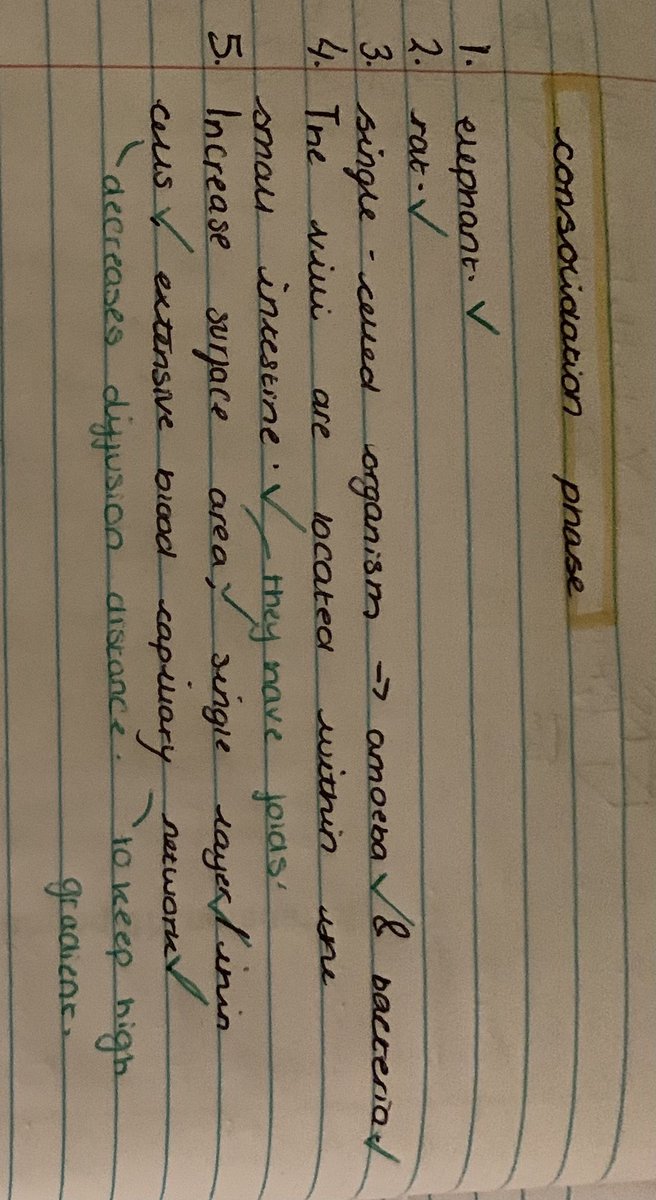 consolidation phase
1. elephant. ✓
2. rat. ✓
3. single-celled organism → amoeba ✓ & bacteria ✓
4. The villi are located within the
small intestine. ✓ they have folds.
5. Increase surface area, ✓ single layer ✓ / thin
cells ✓, extensive blood capillary network ✓
decreases diffusion distance. to keep high
gradient.